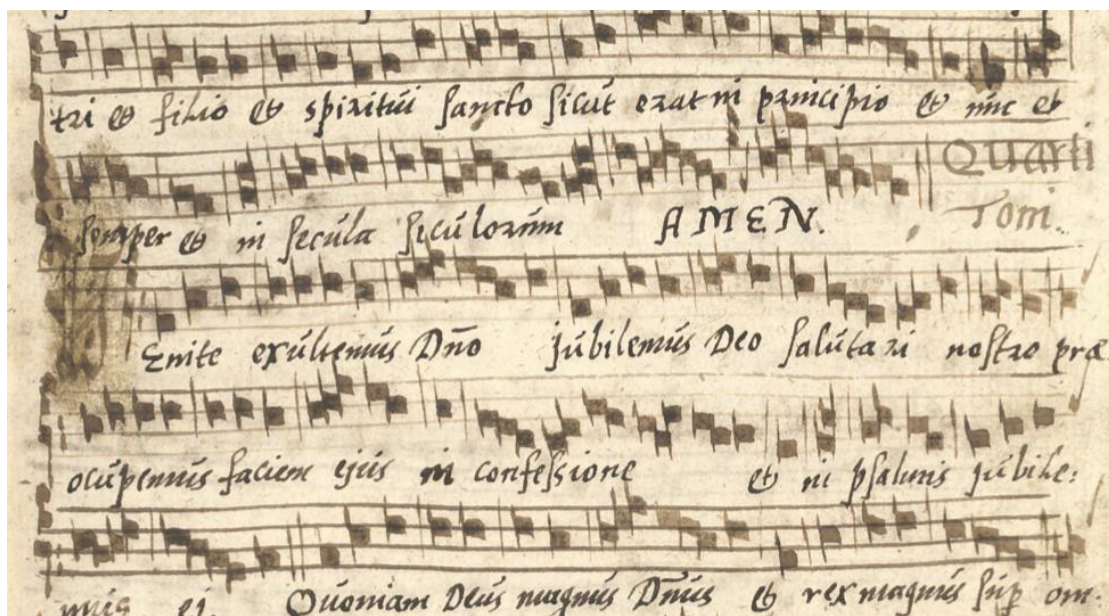 tri et filio et spiritui sancto sicut erat in principio et nunc et
semper et in secula seculorum AMEN. Quarti
Toni.
Venite exultemus Dño jubilemus Deo salutari nostro præ
ocupemus faciem ejus in confessione et in psalmis jubile:
mus ei. Quoniam Deus magnus Dñus et rex magnus sup om: